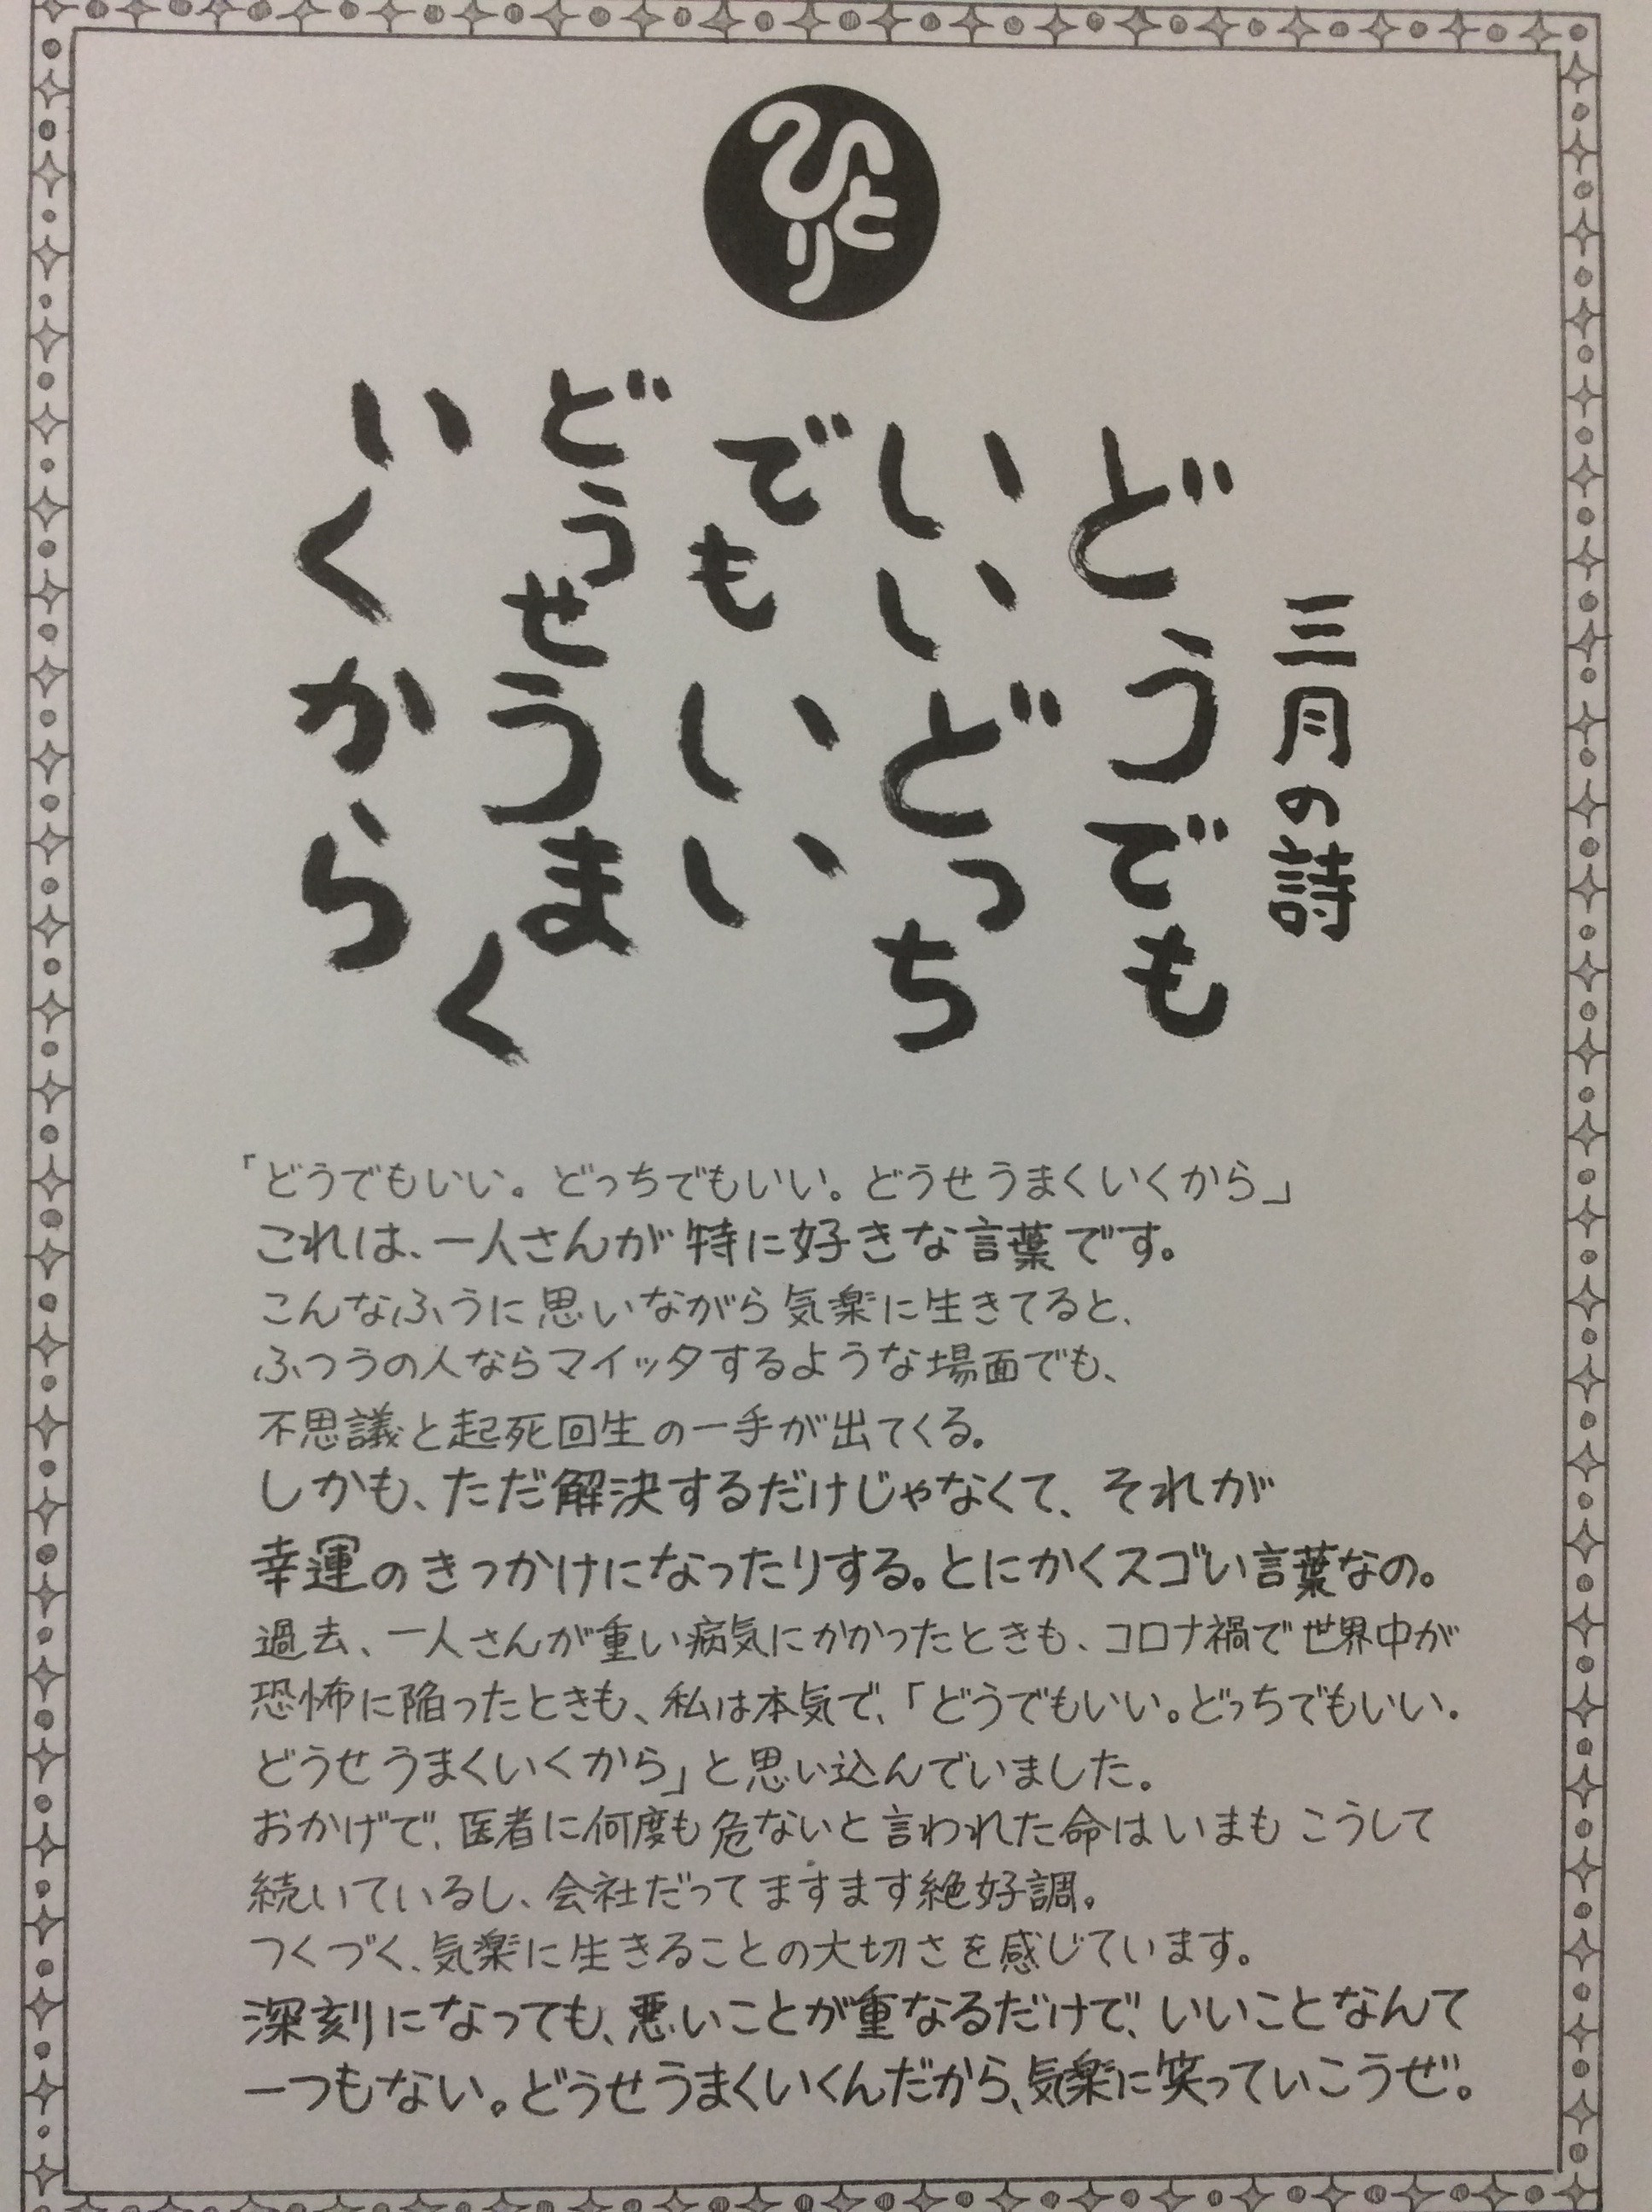 ひとり
三月の詩
どうでも
いいどっち
でもいい
どうせうまく
いくから
「どうでもいい。どっちでもいい。どうせうまくいくから」
これは、一人さんが特に好きな言葉です。
こんなふうに思いながら気楽に生きてると、
ふつうの人ならマイッタするような場面でも、
不思議と起死回生の一手が出てくる。
しかも、ただ解決するだけじゃなくて、それが
幸運のきっかけになったりする。とにかくスゴい言葉なの。
過去、一人さんが重い病気にかかったときも、コロナ禍で世界中が
恐怖に陥ったときも、私は本気で、「どうでもいい。どっちでもいい。
どうせうまくいくから」と思い込んでいました。
おかげで、医者に何度も危ないと言われた命はいまもこうして
続いているし、会社だってますます絶好調。
つくづく、気楽に生きることの大切さを感じています。
深刻になっても、悪いことが重なるだけで、いいことなんて
一つもない。どうせうまくいくんだから、気楽に笑っていこうぜ。